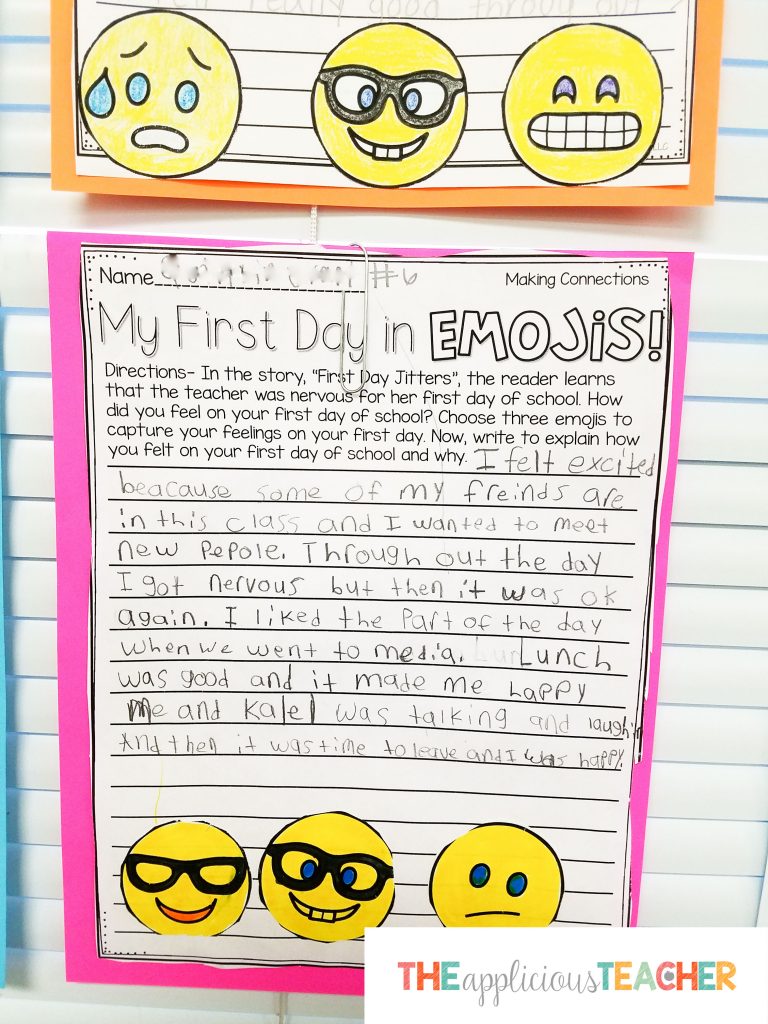 really good throug out
Name #6 Making Connections
My First Day in EMOJiS!
Directions- In the story, "First Day Jitters", the reader learns
that the teacher was nervous for her first day of school. How
did you feel on your first day of school? Choose three emojis to
capture your feelings on your first day. Now, write to explain how
you felt on your first day of school and why. I felt excited
beacause some of my freinds are
in this class and I wanted to meet
new Pepole. Through out the day
I got nervous but then it was ok
again. I liked the Part of the day
when we went to media. Lunch
was good and it made me happy
Me and Kalel was talking and laughin
And then it was time to leave and I was happy.
THE appliciousTEACHER